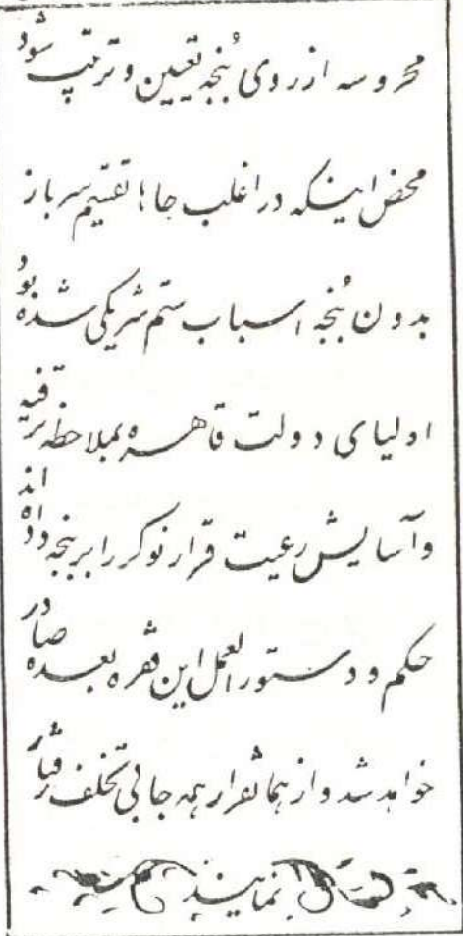 محروسه از روی بُنجه تعیین و ترتیب شود
محض اینکه در اغلب جاها تقسیم سرباز
بدون بُنجه اسباب ستم شریکی شده بود
اولیای دولت قاهره بملاحظه ترفیه
و آسایش رعیت قرار نوکر را بر بنجه داده اند
حکم و دستورالعمل این فقره بعده صادر
خواهد شد و از همانقرار همه جا بی تخلف رفتار
نمایند